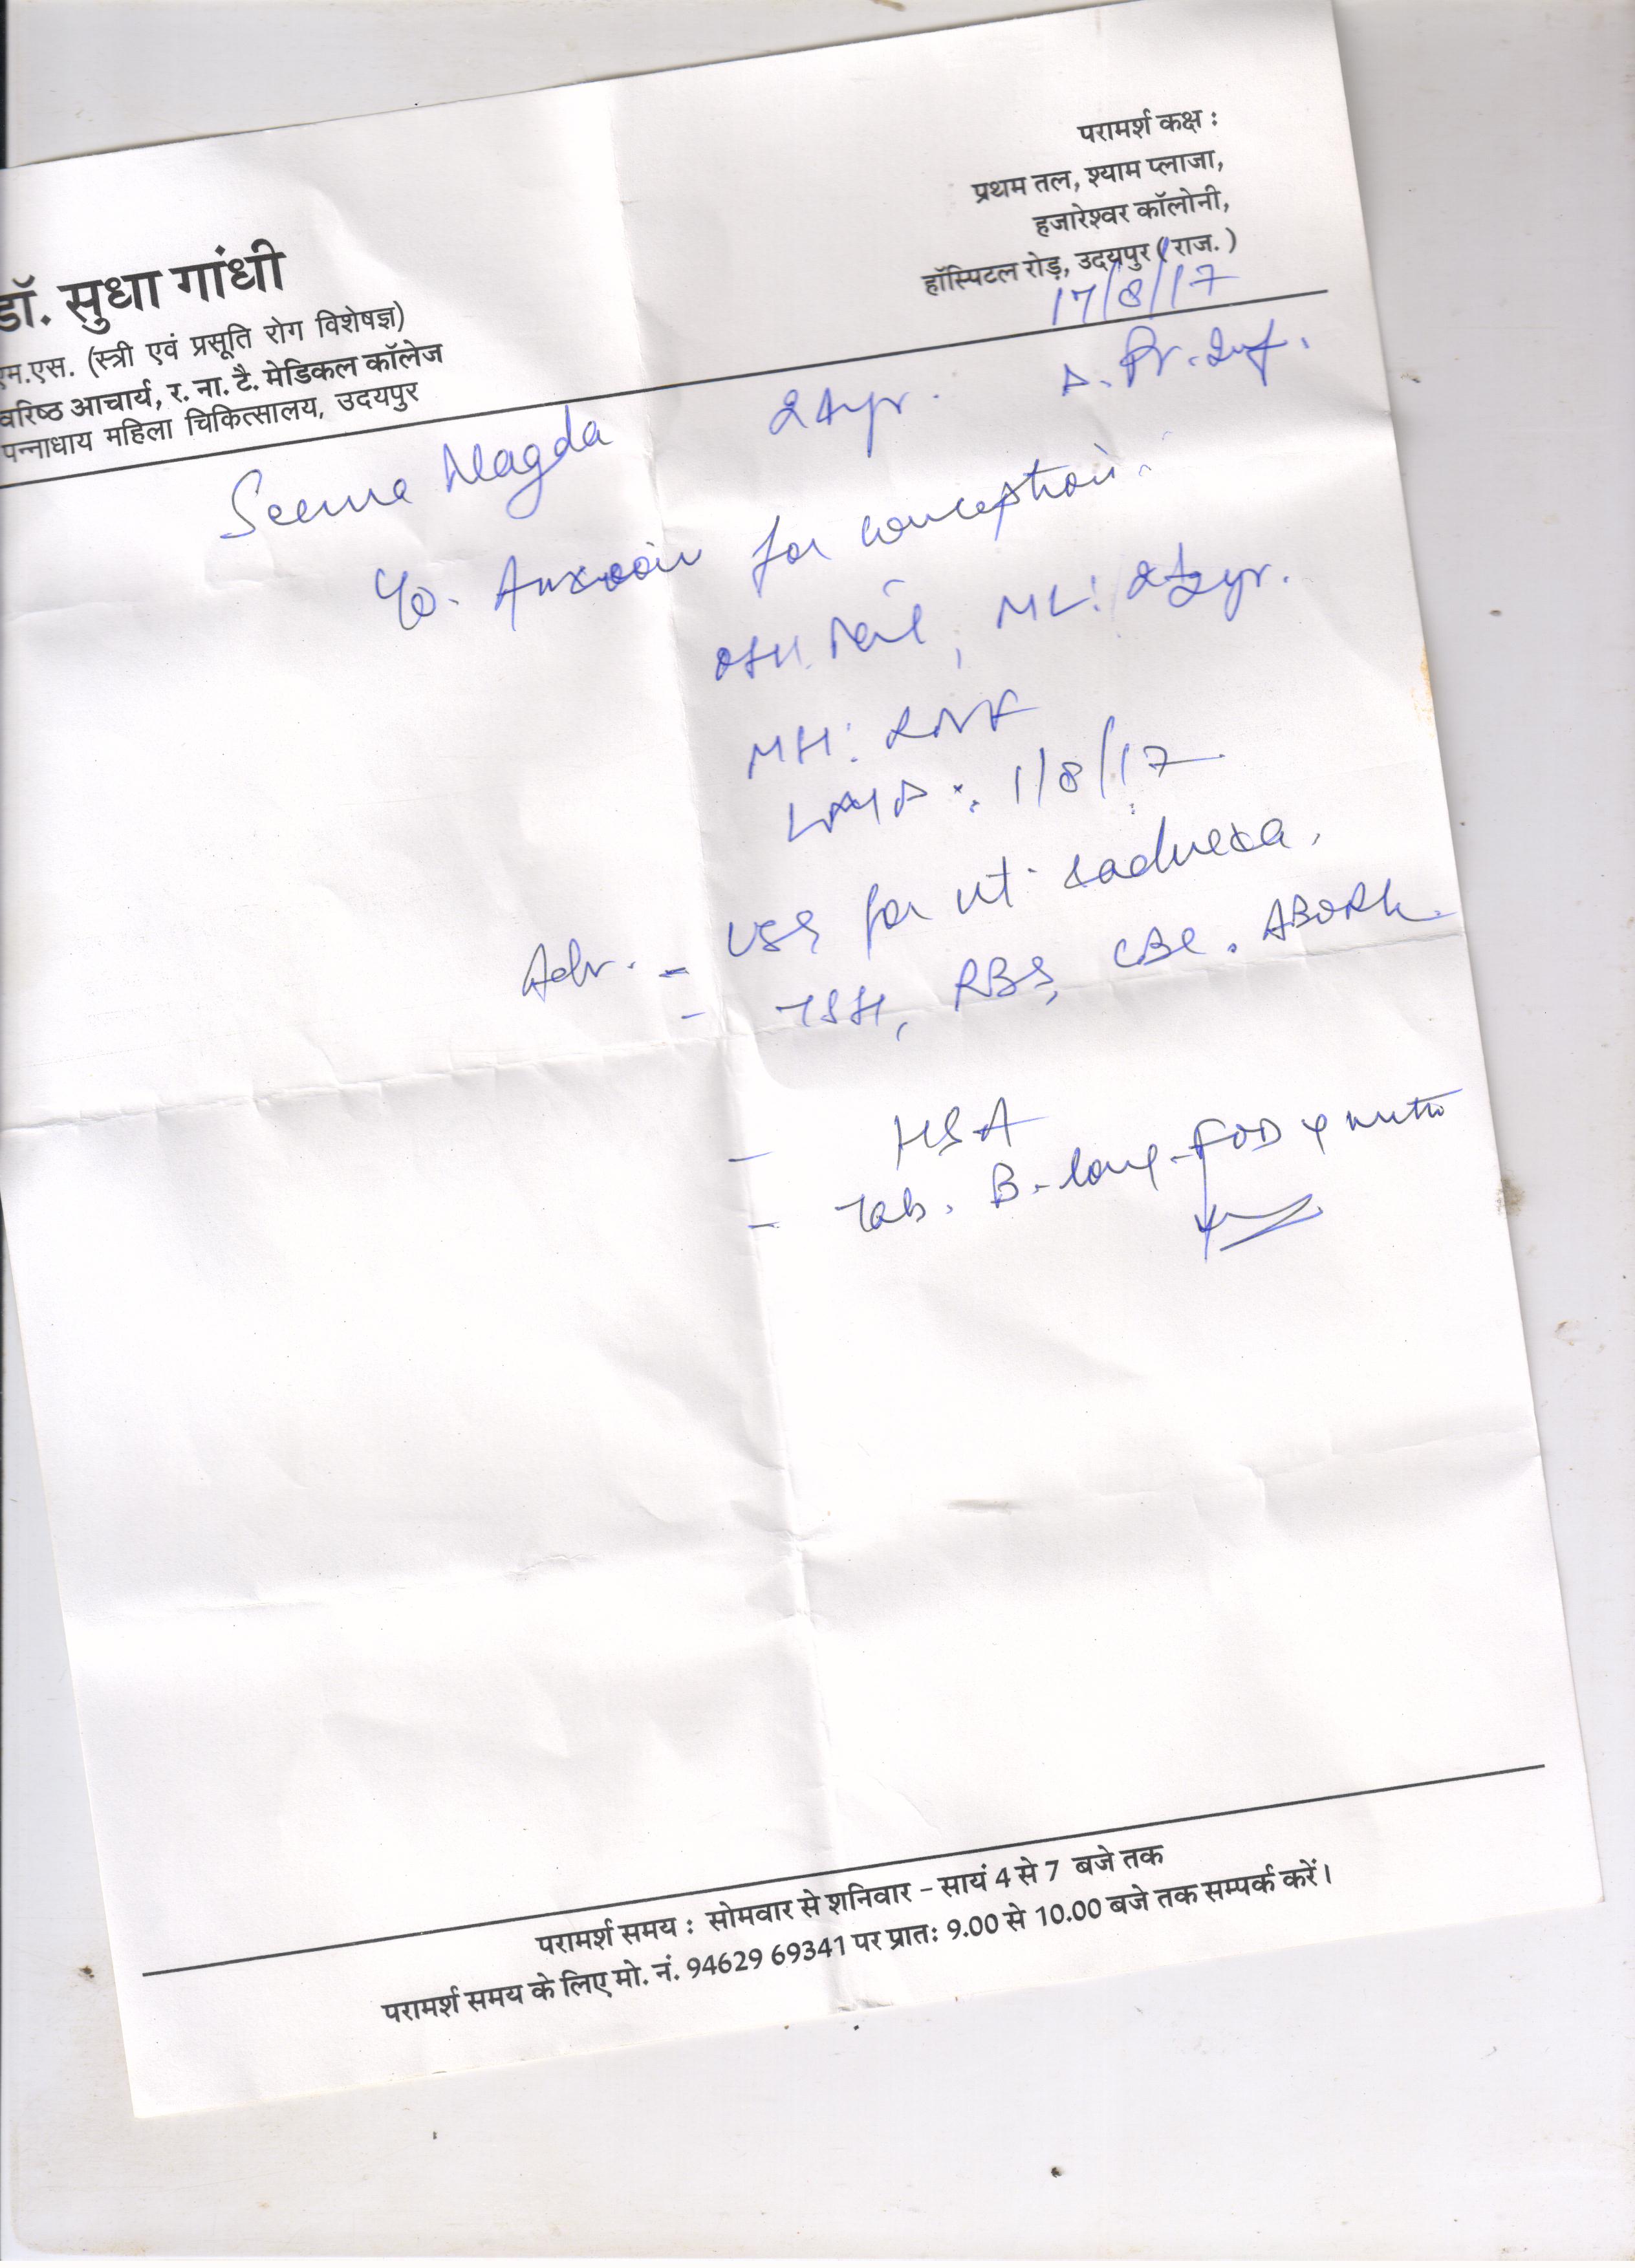 परामर्श कक्ष :
प्रथम तल, श्याम प्लाजा,
हजारेश्वर कॉलोनी,
हॉस्पिटल रोड़, उदयपुर ( राज. )
डॉ. सुधा गांधी
एम.एस. (स्त्री एवं प्रसूति रोग विशेषज्ञ)
वरिष्ठ आचार्य, र. ना. टै. मेडिकल कॉलेज
पन्नाधाय महिला चिकित्सालय, उदयपुर
17/8/17
Seema 24yr. Pr. Inf.
for conception.
Nil, ML: 2½yr.
MH:
LMP: 1/8/17
Adv. - USG for ut. & adnexa.
- TSH, RBS, CBC. ABORh.
- HSA
- Tab. B-long-F OD
परामर्श समय : सोमवार से शनिवार – सायं 4 से 7 बजे तक
परामर्श समय के लिए मो. नं. 94629 69341 पर प्रातः 9.00 से 10.00 बजे तक सम्पर्क करें।